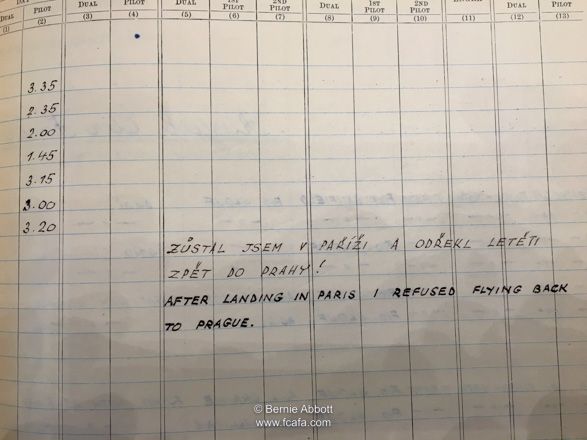 DAY
DUAL PILOT DUAL PILOT DUAL 1ST PILOT 2ND PILOT DUAL 1ST PILOT 2ND PILOT DUAL PILOT
(1) (2) (3) (4) (5) (6) (7) (8) (9) (10) (11) (12) (13)
3.35
2.35
2.00
1.45
3.15
3.00
3.20
ZŮSTAL JSEM V PAŘÍŽI A ODŘEKL LETĚTI
ZPĚT DO PRAHY!
AFTER LANDING IN PARIS I REFUSED FLYING BACK
TO PRAGUE.
© Bernie Abbott
www.fcafa.com